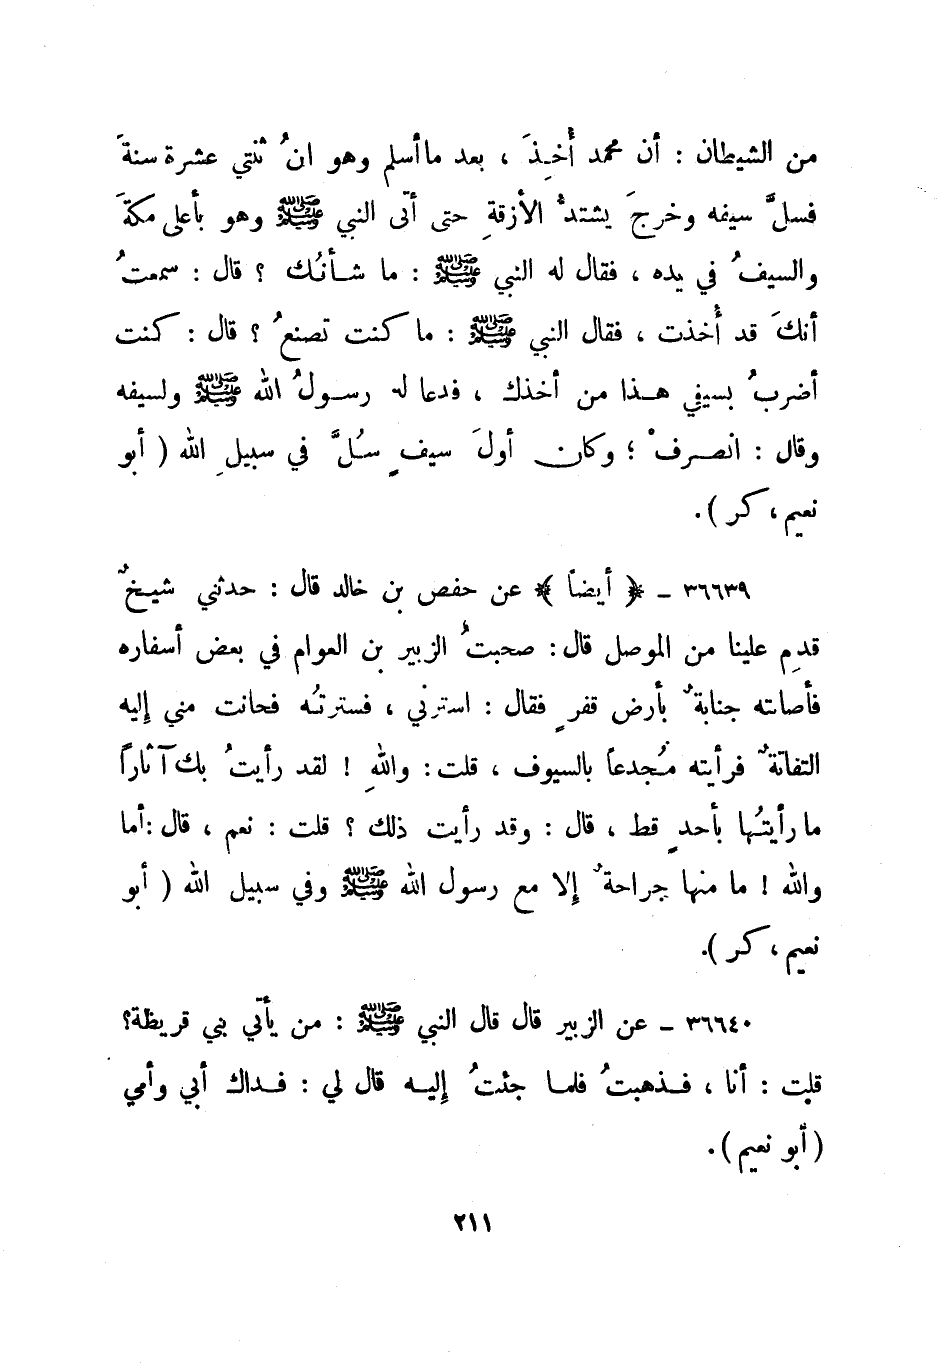 من الشيطان : أن محمد أُخِذَ ، بعد ما أسلم وهو ابنُ ثنتي عشرة سنةَ
فسلَّ سيفه وخرجَ يشتدُّ الأزقةِ حتى أتى النبي ﷺ وهو بأعلى مكةَ
والسيفُ في يده ، فقال له النبي ﷺ : ما شأنُك ؟ قال : سمعتُ
أنكَ قد أُخذت ، فقال النبي ﷺ : ما كنت تصنعُ ؟ قال : كنت
أضربُ بسيفي هذا من أخذك ، فدعا له رسولُ الله ﷺ ولسيفه
وقال : انصرفْ ؛ وكان أولَ سيفٍ سُلَّ في سبيلِ الله ( أبو
نعيم ، كر ) .
٣٦٦٣٩ - ﴿ أيضاً ﴾ عن حفص بن خالد قال : حدثني شيخٌ
قدِم علينا من الموصل قال : صحبتُ الزبير بن العوام في بعض أسفاره
فأصابته جنابةٌ بأرض قفرٍ فقال : استرني ، فسترتُه فحانت مني إليه
التفاتةٌ فرأيته مُجدعاً بالسيوف ، قلت : واللهِ ! لقد رأيتُ بك آثاراً
ما رأيتُها بأحدٍ قط ، قال : وقد رأيت ذلك ؟ قلت : نعم ، قال : أما
والله ! ما منها جراحةٌ إلا مع رسول الله ﷺ وفي سبيل الله ( أبو
نعيم ، كر ) .
٣٦٦٤٠ - عن الزبير قال قال النبي ﷺ : من يأتي بني قريظة ؟
قلت : أنا ، فذهبتُ فلما جئتُ إليه قال لي : فداك أبي وأمي
( أبو نعيم ) .
٢١١